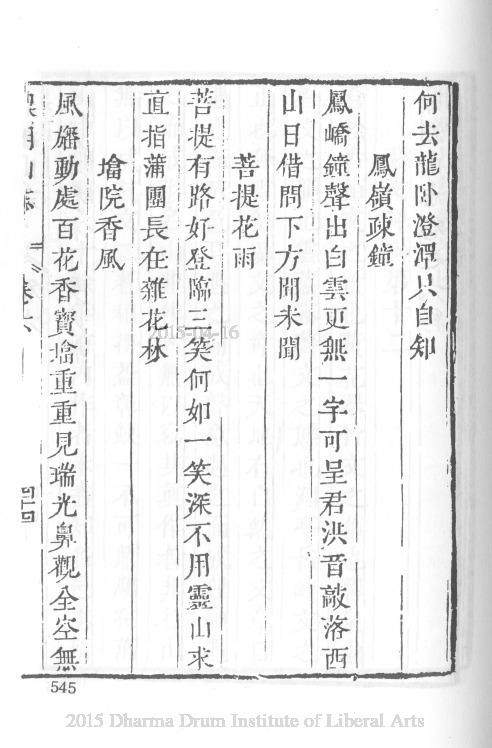 何去龍卧澄潭只自知
鳳嶺疎鐘
鳳嶠鐘聲出白雲更無一字可呈君洪音敲落西
山日借問下方聞未聞
菩提花雨
菩提有路好登臨三笑何如一笑深不用靈山求
直指蒲團長在雜花林
墖院香風
風旛動處百花香寶墖重重見瑞光鼻觀全空無
卷六
四十四
545
2018-04-16
2015 Dharma Drum Institute of Liberal Arts